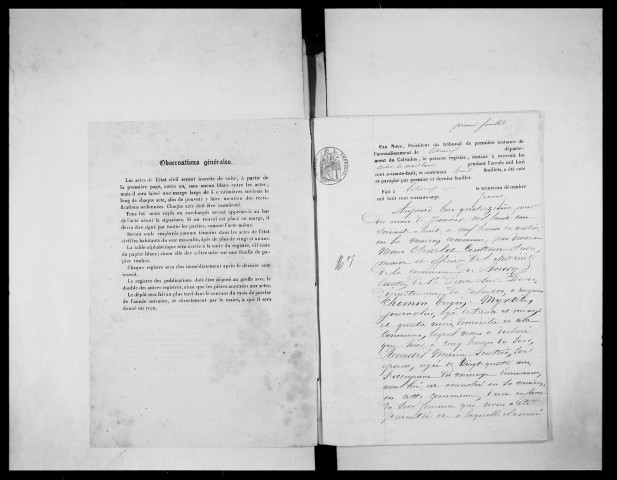 Observations générales.
Les actes de l'état civil seront inscrits de suite, à partir de
la première page, cotée un, sans aucun blanc entre les actes;
mais il sera laissé une marge large de 5 c ntimètres service le
long de chaque acte, afin de pouvoir y faire mention des recti-
fications ordonnées. Chaque acte doit être numéroté.
Tous les mots rayés ou surchargés seront approuvés au bas
de l'acte avant la signature. Si un renvoi est placé en marge, il
devra être signé par toutes les parties, comme l'acte même.
Seront seuls employés comme témoins dans les actes de l'état
civil les habitants du sexe masculin, âgés de plus de vingt et un ans.
La table alphabétique sera écrite à la suite du registre, s'il reste
du papier blanc; sinon elle devra être mise sur une feuille de pa-
pier timbré.
Chaque registre sera clos immédiatement après le dernier acte
inscrit.
Le registre des publications doit être déposé au greffe avec le
double des autres registres, ainsi que les pièces annexées aux actes.
Le dépôt sera fait au plus tard dans le courant du mois de janvier
de l'année suivante, et directement par le maire, à qui il sera
donné un reçu.
premier feuillet
Par Nous, Président du tribunal de première instance de
l'arrondissement de départe-
ment du Calvados, le présent registre, destiné à recevoir les
pendant l'année mil huit
cent soixante-huit, et contenant huit feuillets, a été coté
et paraphé par premier et dernier feuillet.
Fait à le trente-un décembre
mil huit cent soixante-sept.
N° 1
Aujourd'hui
du mois de janvier mil huit cent
soixante huit, à neuf heures du matin,
en la maison commune, par devant
Nous Charles
maire et officier de l'état civil
de la commune de
canton de
département du Calvados, a comparu
journalier, âgé de trente et un ans
et quatre mois, domicilié en cette
commune, lequel nous a déclaré
que hier, à cinq heures du soir,
son
épouse, âgée de vingt quatre ans
s'occupant du ménage demeurant
avec lui, est accouchée en sa maison,
en cette commune, d'un enfant
du sexe féminin qui nous a été
présenté et a laquelle il a donné